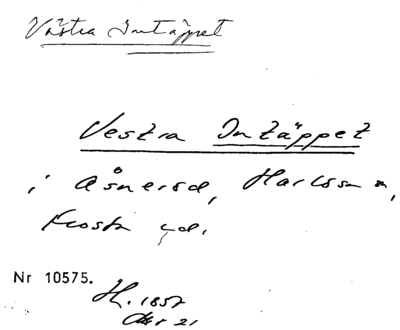 Västra Intäppet
Vestra Intäppet
i Åsnersd, Harlssa n,
Frosta hd.
Nr 10575.
H. 1857
21